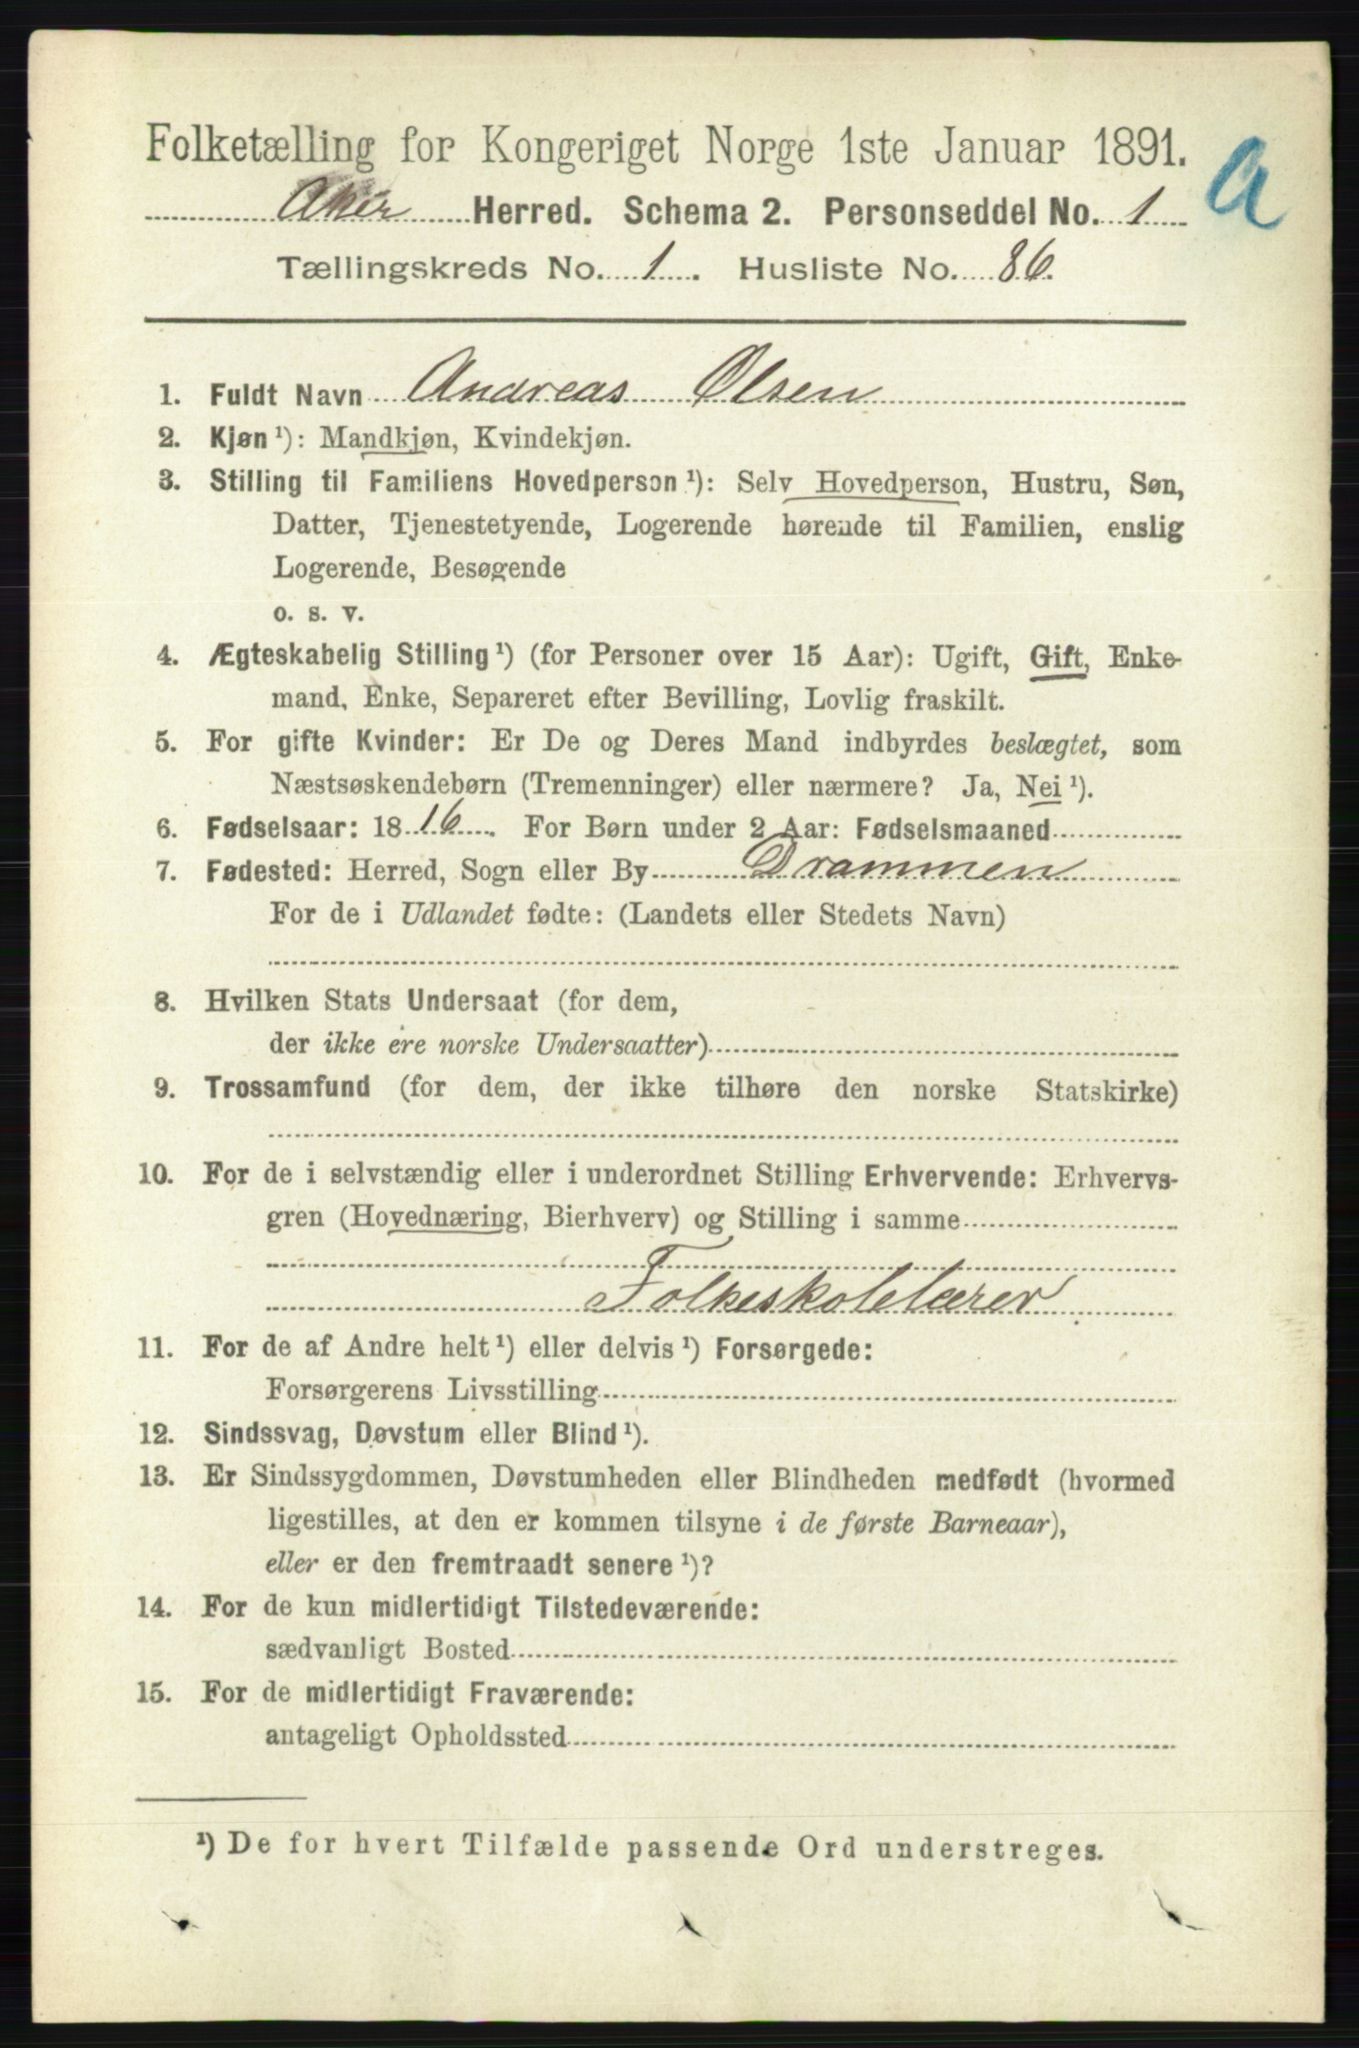 Folketælling for Kongeriget Norge 1ste Januar 1891.
A
Aker Herred. Schema 2. Personseddel No. 1
Tællingskreds No. 1. Husliste No. 86.
1. Fuldt Navn Andreas Olsen
2. Kjøn ¹): Mandkjøn, Kvindekjøn.
3. Stilling til Familiens Hovedperson ¹): Selv Hovedperson, Hustru, Søn,
Datter, Tjenestetyende, Logerende hørende til Familien, enslig
Logerende, Besøgende
o. s. v.
4. Ægteskabelig Stilling ¹) (for Personer over 15 Aar): Ugift, Gift, Enke-
mand, Enke, Separeret efter Bevilling, Lovlig fraskilt.
5. For gifte Kvinder: Er De og Deres Mand indbyrdes beslægtet, som
Næstsøskendebørn (Tremenninger) eller nærmere? Ja, Nei ¹).
6. Fødselsaar: 1816. For Børn under 2 Aar: Fødselsmaaned
7. Fødested: Herred, Sogn eller By Drammen
For de i Udlandet fødte: (Landets eller Stedets Navn)
8. Hvilken Stats Undersaat (for dem,
der ikke ere norske Undersaatter)
9. Trossamfund (for dem, der ikke tilhøre den norske Statskirke)
10. For de i selvstændig eller i underordnet Stilling Erhvervende: Erhvervs-
gren (Hovednæring, Bierhverv) og Stilling i samme
Folkeskolelærer
11. For de af Andre helt ¹) eller delvis ¹) Forsørgede:
Forsørgerens Livsstilling
12. Sindssvag, Døvstum eller Blind ¹).
13. Er Sindssygdommen, Døvstumheden eller Blindheden medfødt (hvormed
ligestilles, at den er kommen tilsyne i de første Barneaar),
eller er den fremtraadt senere ¹)?
14. For de kun midlertidigt Tilstedeværende:
sædvanligt Bosted
15. For de midlertidigt Fraværende:
antageligt Opholdssted
¹) De for hvert Tilfælde passende Ord understreges.